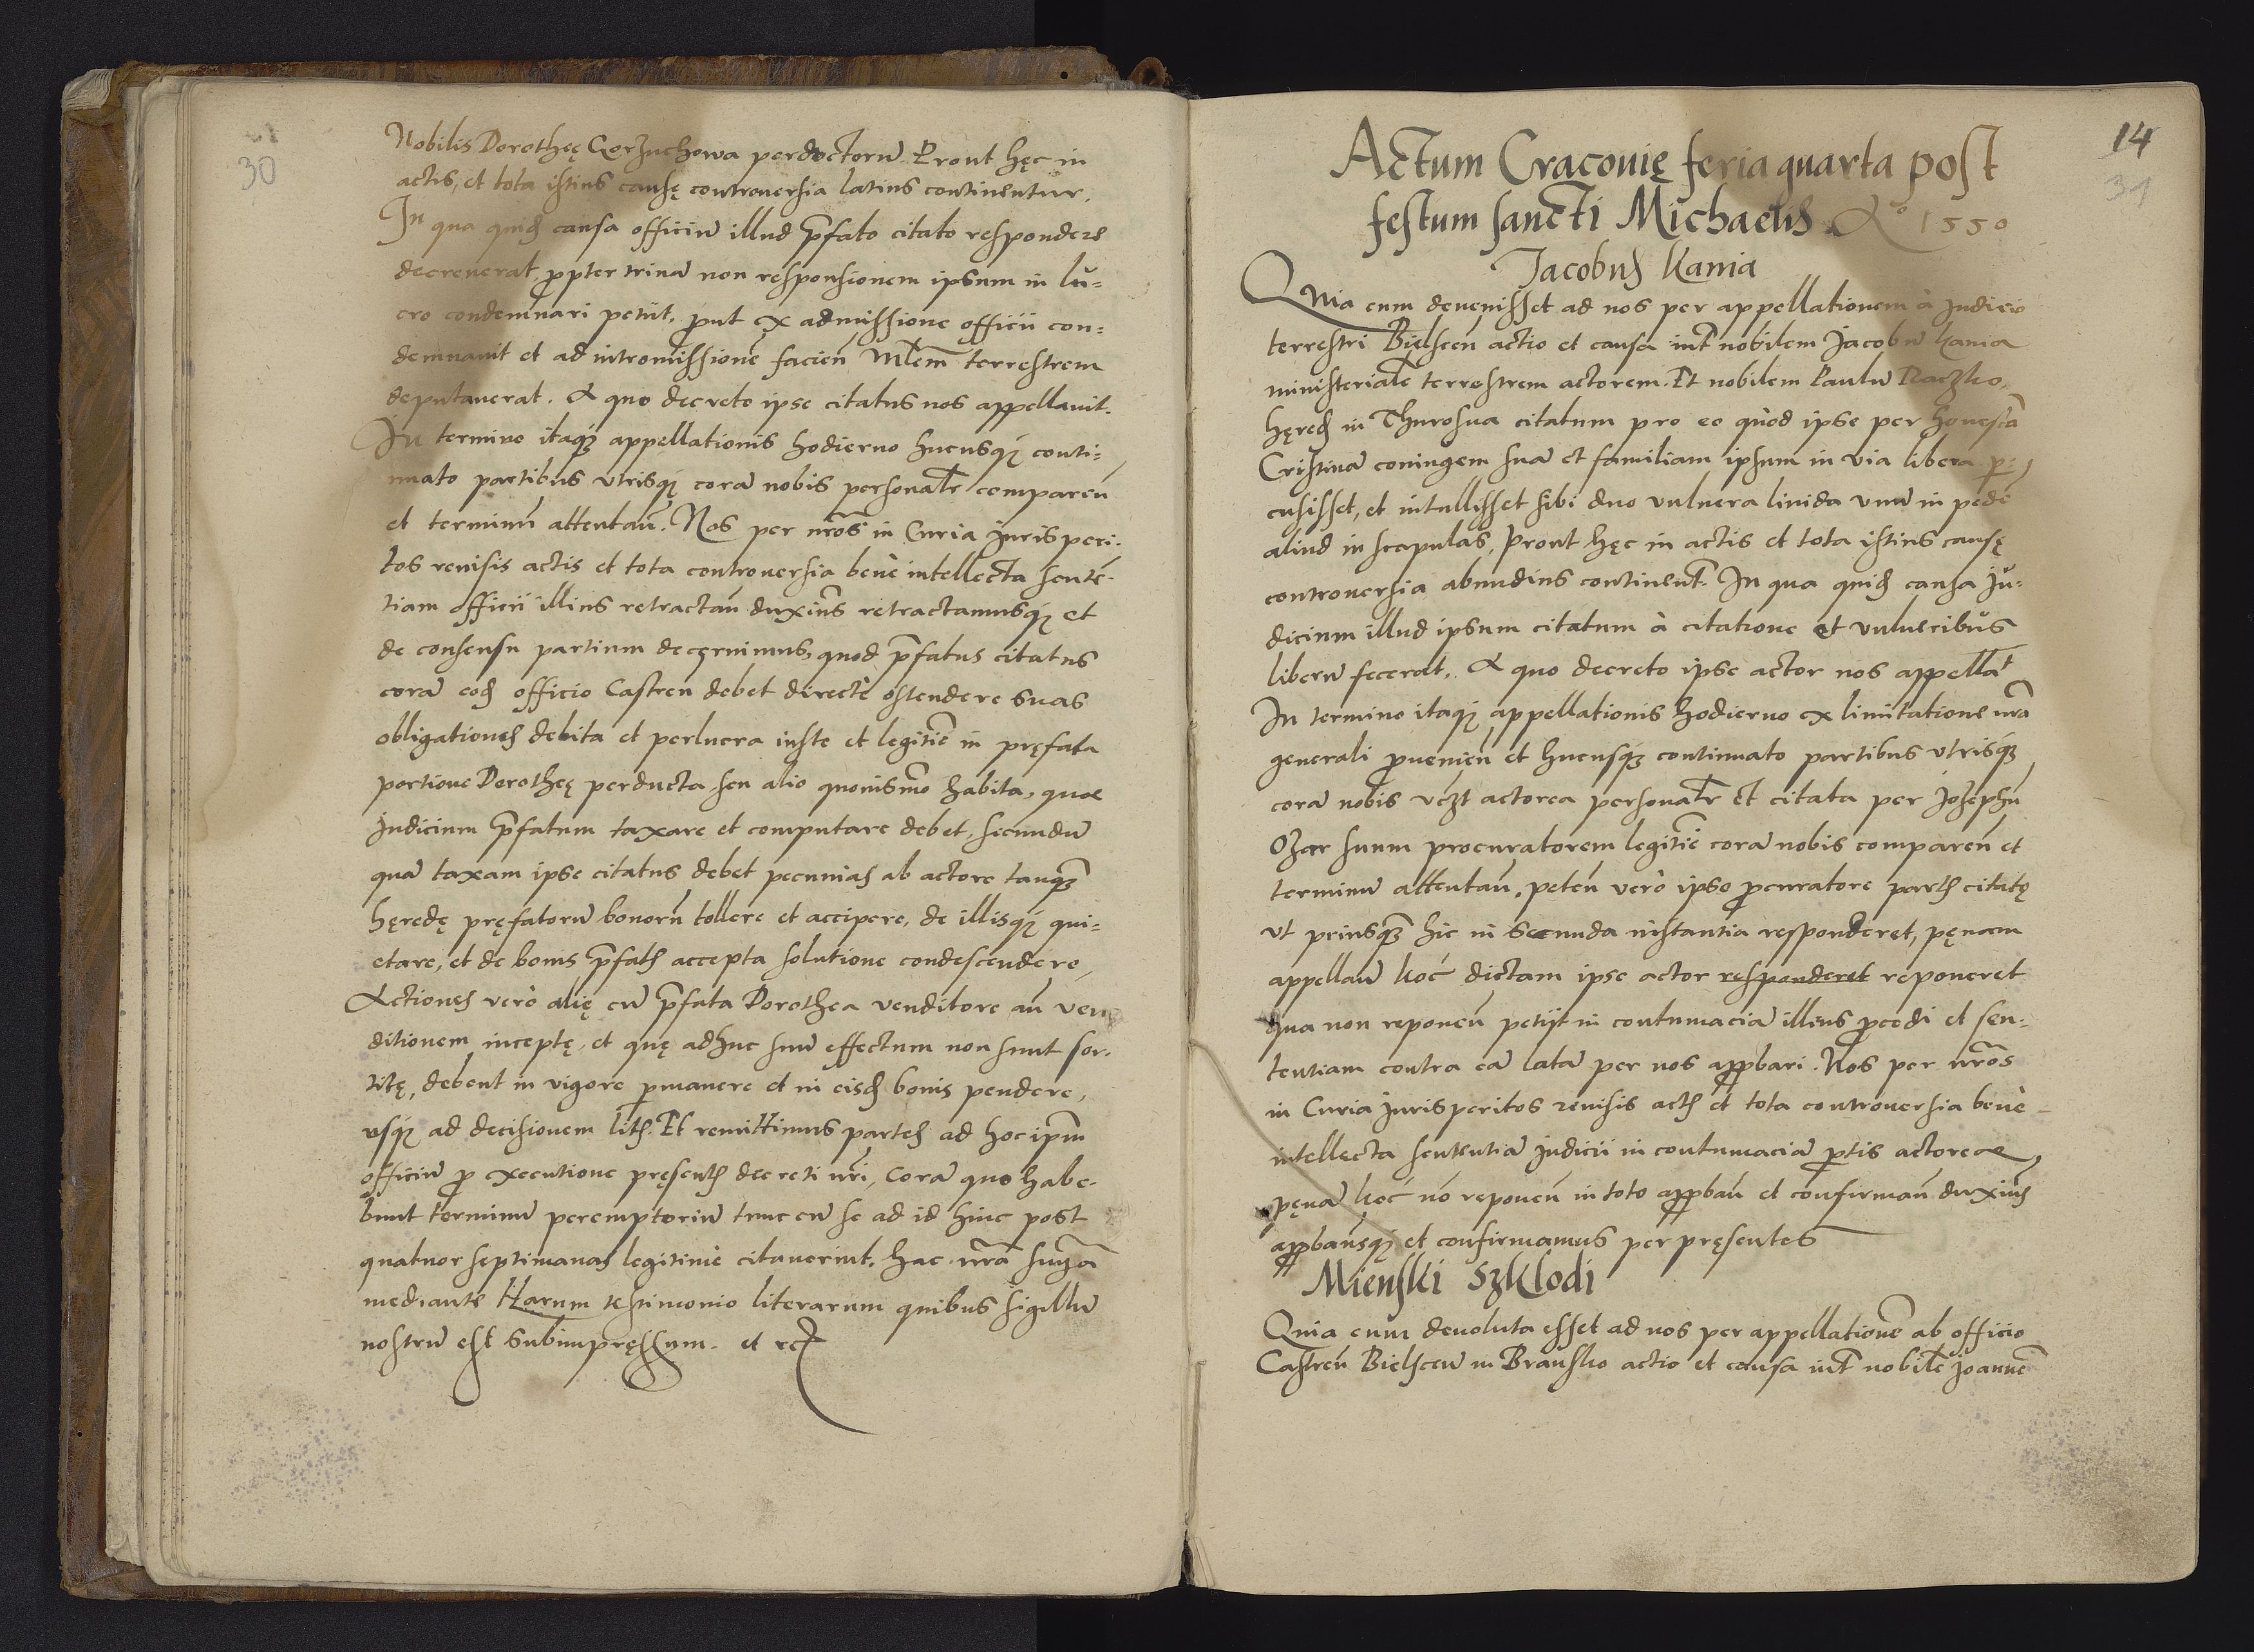 30
Nobilis Dorotheę Gorzuchowa perdoctorũ. Prout hęc in
actis, et tota istius causę controuersia latius continentur.
In qua quidẽ causa officiũ illud p̃fato citato respondere
decreuerat propter trinã non responsionem ipsum in lu=
cro condemnari petiit, prout ex admissione officii con=
demnauit et ad intromissionẽ facieñ Mlem̃ terrestrem
deputauerat. A quo decreto ipse citatus nos appellauit.
In termino itaq3 appellationis hodierno hucusq3 conti=
nuato partibus utrisq3 corã nobis personalr̃ compareñ
et terminũ attentañ. Nos per nr̃os in Curia Jurisperi=
tos reuisis actis et tota controuersia benè intellecta senten=
tiam officii illius retractañ duxim9 retractamusq3 et
de consensu partium decernimus, quod p̃fatus citatus
corã eodẽ officio Castreñ debet directè ostendere suas
obligationes debita et perlucra iuste et legitimẽ in pręfata
portione Dorotheę perducta seu alio quouismo habita, quae
Judicium p̃fatum taxare et computare debet, secundũ
quã taxam ipse citatus debet pecunias ab actore tanq3
hęrede pręfatorũ bonorũ tollere et accipere, de illisq3 qui=
etare, et de bonis p̃fatis accepta solutione condescendere
Actiones verò alię cũ p̃fata Dorothea venditore añ ven
ditionem inceptę, et quę adhuc suũ effectum non sunt sor=
titę, debent in vigore permanere et in eisdẽ bonis pendere,
usq3 ad decisionem litis. Et remittimus partes ad hoc ipm̃
officiũ pro executione pręsentis decreti nr̃i, Corã quo habe=
bunt terminũ peremptoriũ tunc cũ se ad id hinc post
quatuor septimanas legitimè citauerint. hac nr̃a sniã
mediante Harum testimonio literarum quibus sigillũ
nostrũ est subimpręssum. et rc̃
14
31
Actum Cracouię feria quarta post
festum sancti Michaelis Ao 1550
Jacobus Kania
Quia cum deuenisset ad nos per appellationem à Judicio
terrestri Bielsceñ actio et causa int̃ nobilem Jacobũ Kania
ministerialẽ terrestrem actorem. Et nobilem Paulũ Raczko
hęredẽ in Thurosna citatum pro eo quòd ipse per honestã
Cristinã coniugem suã et familiam ipsum in via libera per=
cusisset, et intullisset sibi duo vulnera liuida unũ in pede
aliud in scapulas, Prout hęc in actis et tota istius causę
controuersia abundius continent̃. In qua quidẽ causa Ju=
dicium illud ipsum citatum à citatione et vulneribus
liberũ fecerat. A quo decreto ipse actor nos appellat
In termino itaq3 appellationis hodierno ex limitatione nr̃a
generali proueniẽñ et hucusq3 continuato partibus utrisq3
corã nobis vczt actorea personalr̃ et citata per Josephũ
Ozar suum procuratorem legitimẽ corã nobis compareñ et
terminũ attentañ, peteñ verò ipso procuratore partis citatę
ut priusq3 hic in secunda instantia responderet, pęnam
appellauñ koc̃ dictam ipse actor responderet reponeret
qua non reponeñ petijt in contumaciã illius procedi et sen=
tentiam contra eã latã per nos approbari. Nos per nr̃os
in Curia Jurisperitos reuisis actis et tota controuersia benè
intellecta sententiã Judicii in contumaciã partis actoreae,
pęnã koc̃ nõ reponeñ in toto approbañ et confirmañ duxim9
approbamusq3 et confirmamus per pręsentes
Mienski Szklodi
Quia cum deuoluta esset ad nos per appellationẽ ab officio
Castreñ Bielsceñ in Bransko actio et causa int̃ nobilẽ Joannẽ